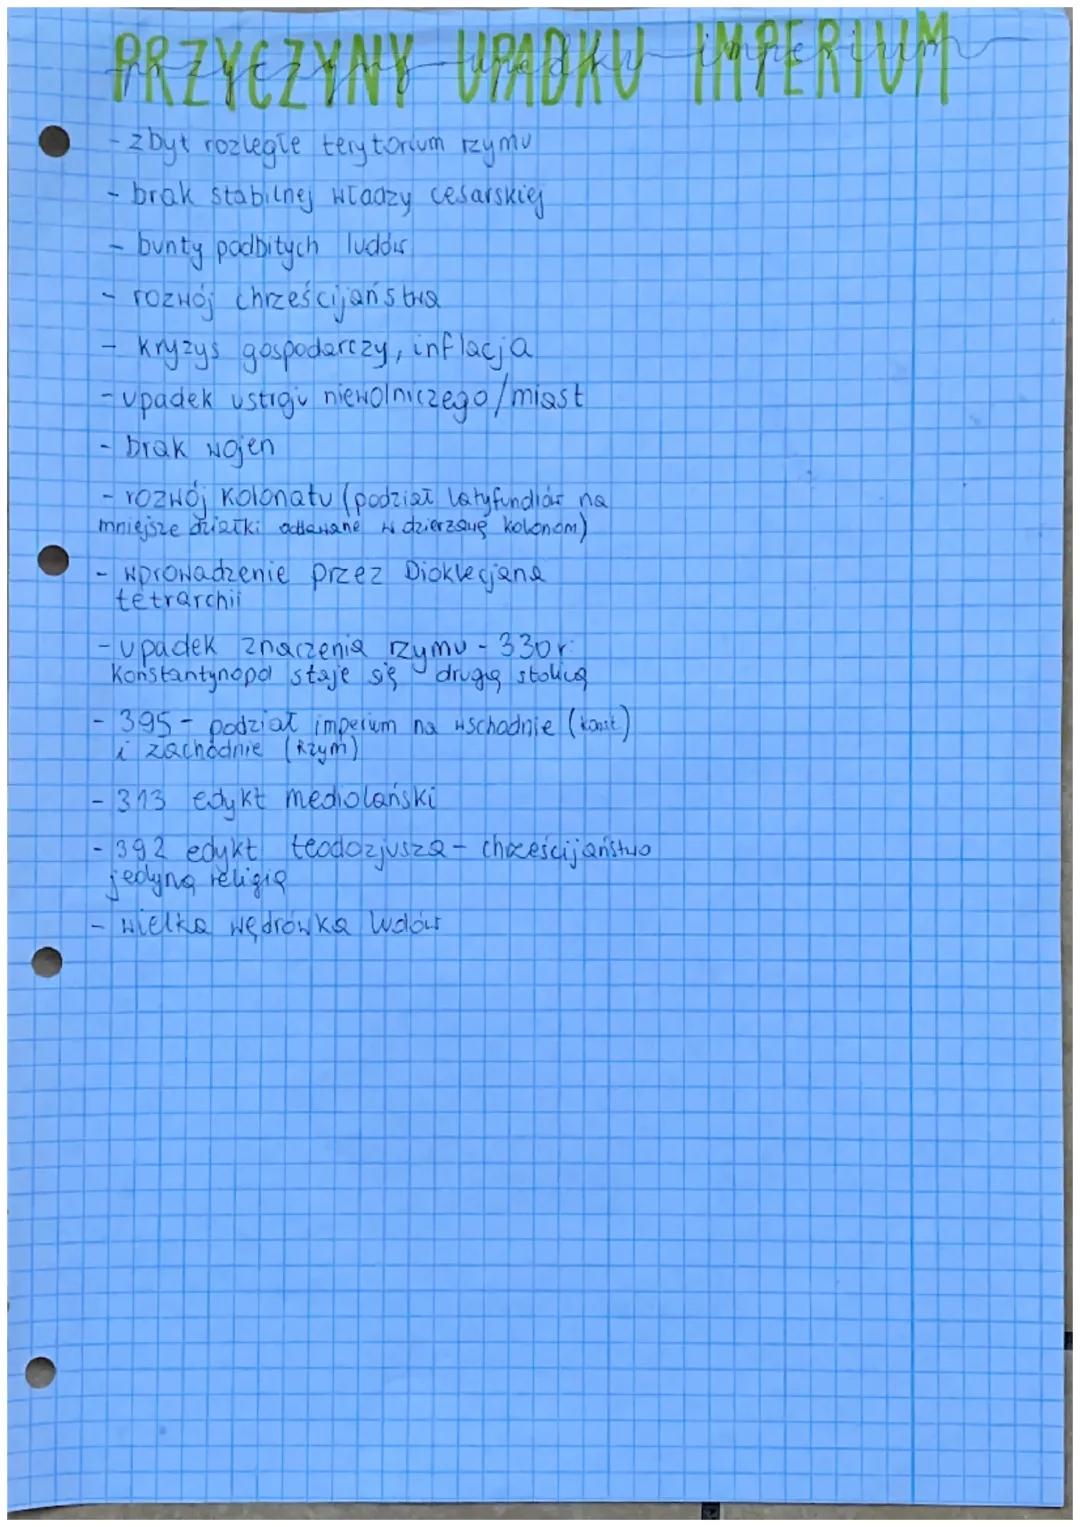 PRZYCZYNY UPADKU IMPERIUM
- zbyt rozległe terytorium rzymu
- brak stabilnej władzy cesarskiej
- bunty podbitych ludów
- rozwój chrześcijaństwa
- kryzys gospodarczy, inflacja
- upadek ustroju niewolniczego/miast
- brak wojen
- rozwój kolonatu (podział latyfundiów na
mniejsze działki oddawane w dzierżawę kolonom)
- wprowadzenie przez Dioklecjana
tetrarchii
- upadek znaczenia rzymu - 330r.
Konstantynopol staje się drugą stolicą
- 395 - podział imperium na wschodnie (konst.)
i zachodnie (Rzym)
- 313 edykt mediolański
- 392 edykt teodozjusza - chrześcijaństwo
jedyną religią
- wielka wędrówka ludów